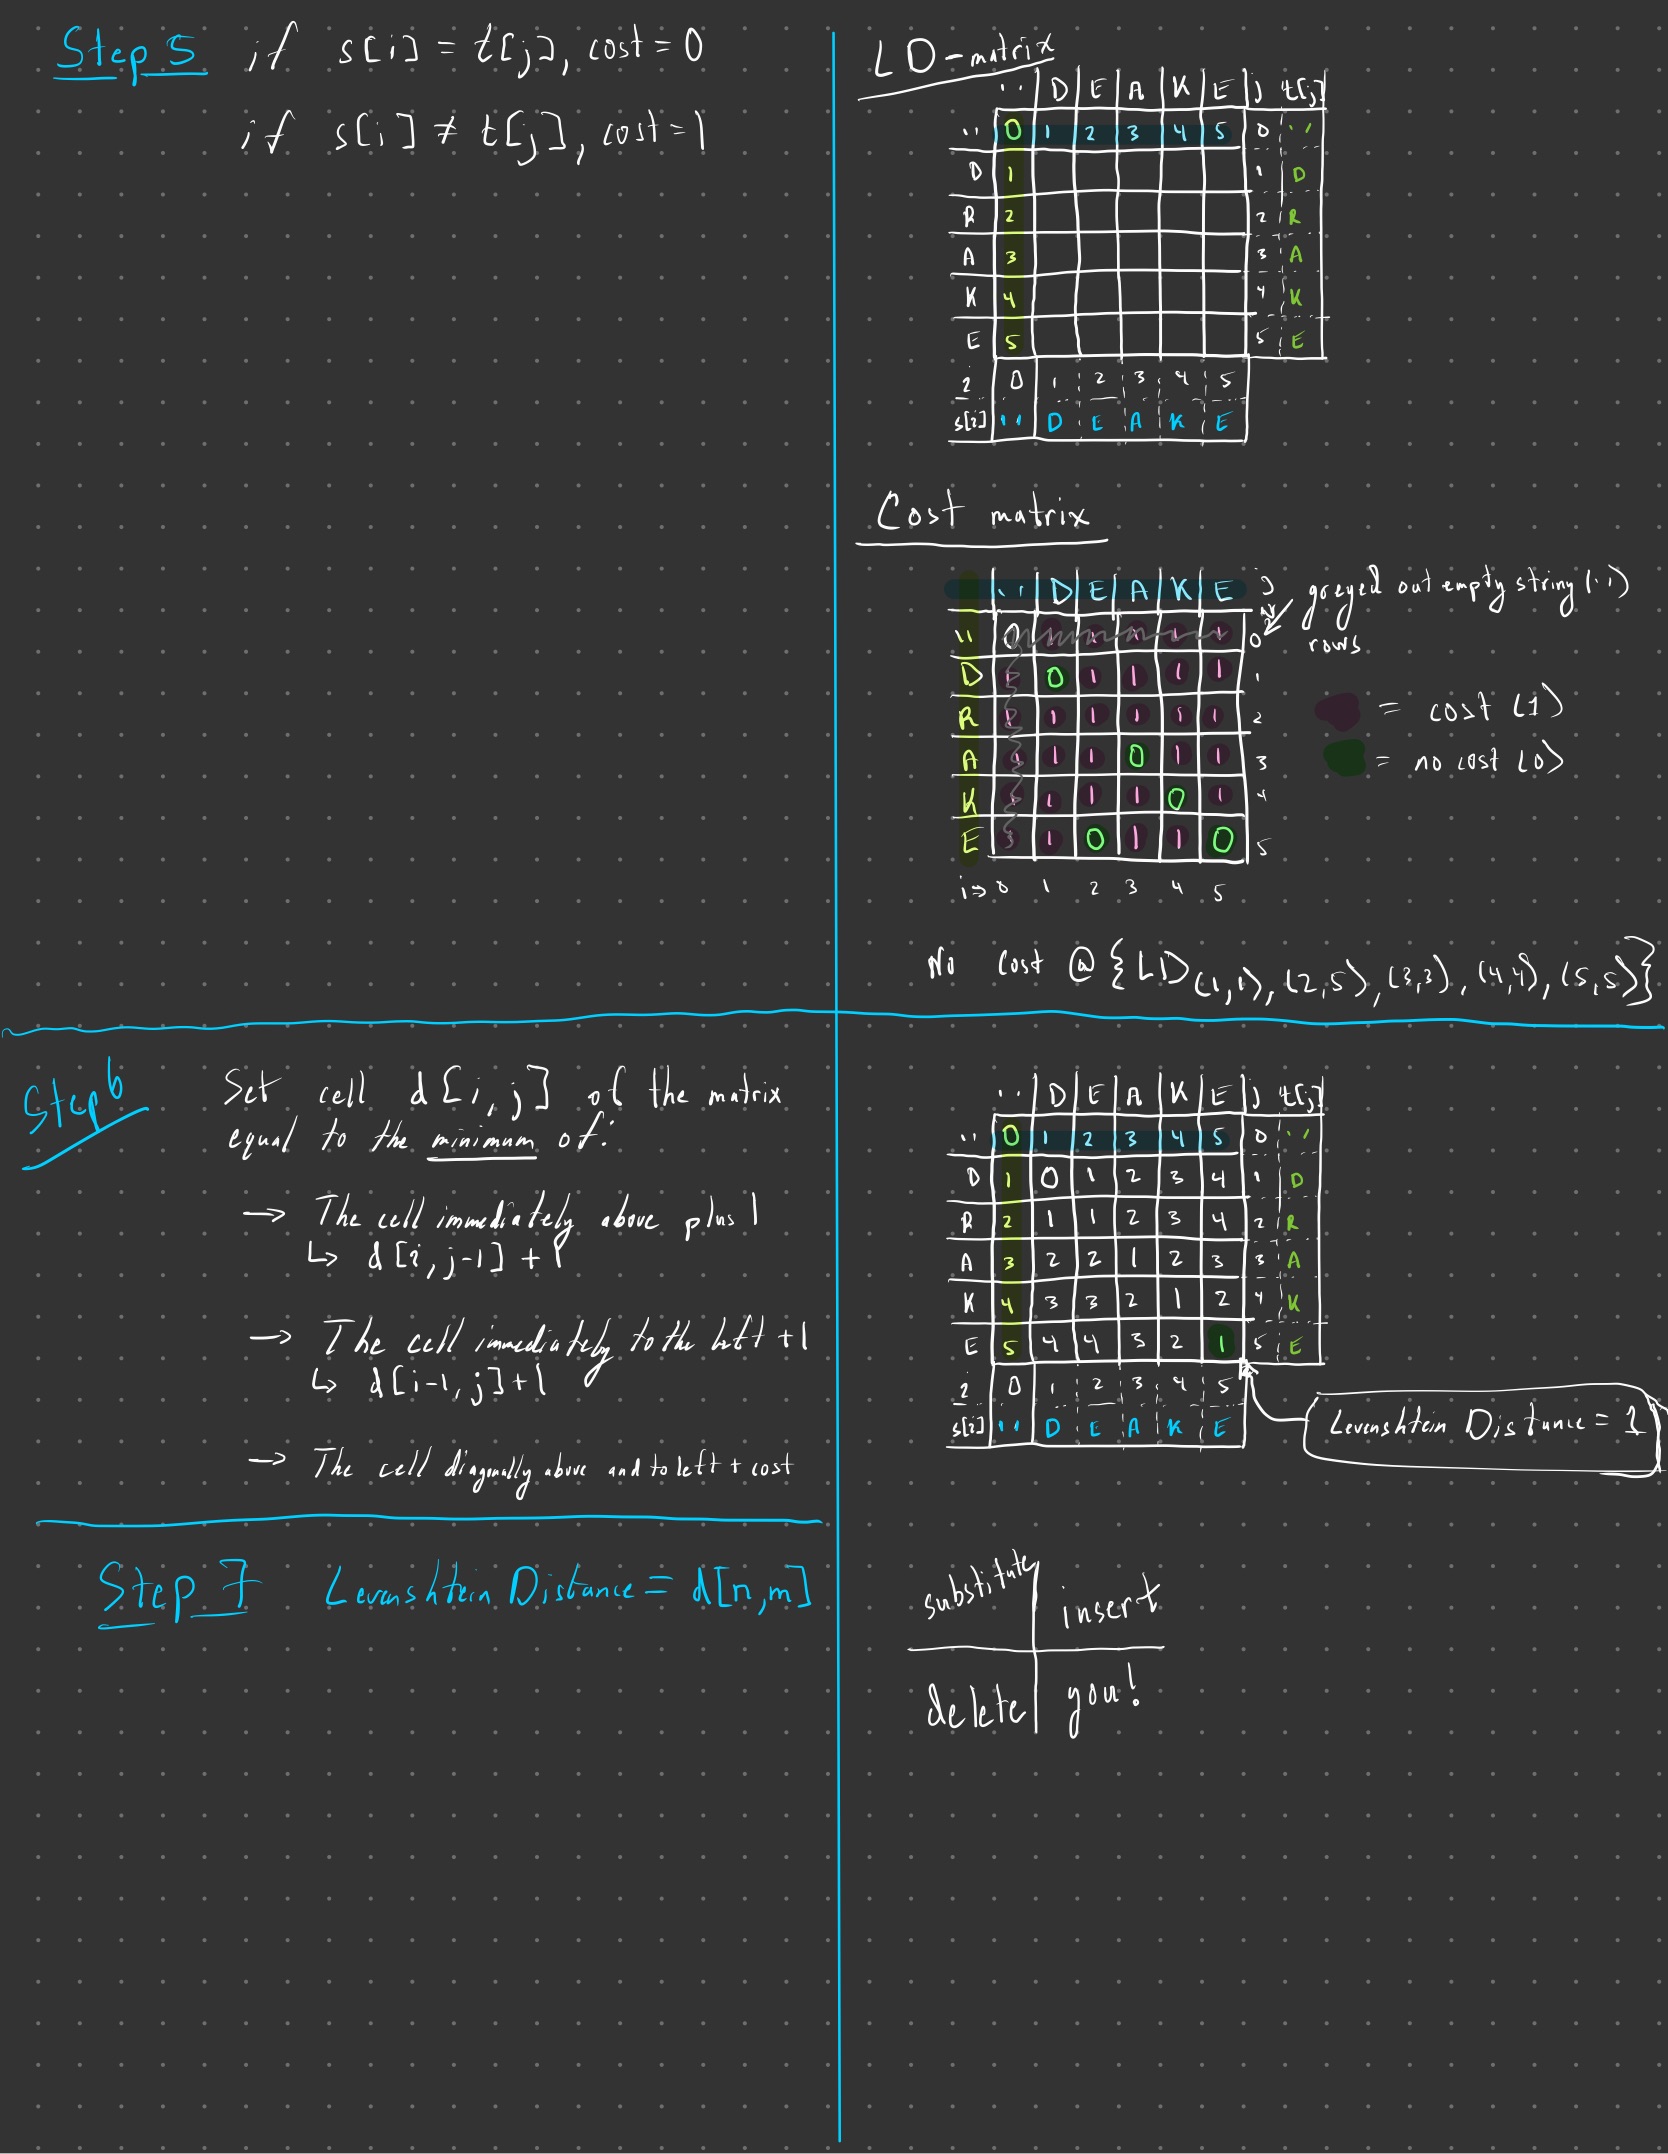 Step 5 if s[i] = t[j], cost = 0
if s[i] ≠ t[j], cost = 1
LD-matrix
'' D E A K E j t[j]
'' 0 1 2 3 4 5 0 ''
D 1 1 D
R 2 2 R
A 3 3 A
K 4 4 K
E 5 5 E
i 0 1 2 3 4 5
s[i] '' D E A K E
Cost matrix
'' D E A K E j
greyed out empty string ('')
rows
'' 0 1 1 1 1 1 0
D 1 0 1 1 1 1 1
R 1 1 1 1 1 1 2
A 1 1 1 0 1 1 3
K 1 1 1 1 0 1 4
E 1 0 1 1 0 5
i → 0 1 2 3 4 5
= cost (1)
= no cost (0)
No cost @ {LD(1,1), (2,5), (3,3), (4,4), (5,5)}
Step 6 Set cell d[i, j] of the matrix
equal to the minimum of:
→ The cell immediately above plus 1
↳ d[i, j-1] + 1
→ The cell immediately to the left + 1
↳ d[i-1, j] + 1
→ The cell diagonally above and to left + cost
'' D E A K E j t[j]
'' 0 1 2 3 4 5 0 ''
D 1 0 1 2 3 4 1 D
R 2 1 1 2 3 4 2 R
A 3 2 2 1 2 3 3 A
K 4 3 3 2 1 2 4 K
E 5 4 4 3 2 1 5 E
i 0 1 2 3 4 5
s[i] '' D E A K E
Levenshtein Distance = 1
Step 7 Levenshtein Distance = d[n,m]
substitute insert
delete you!